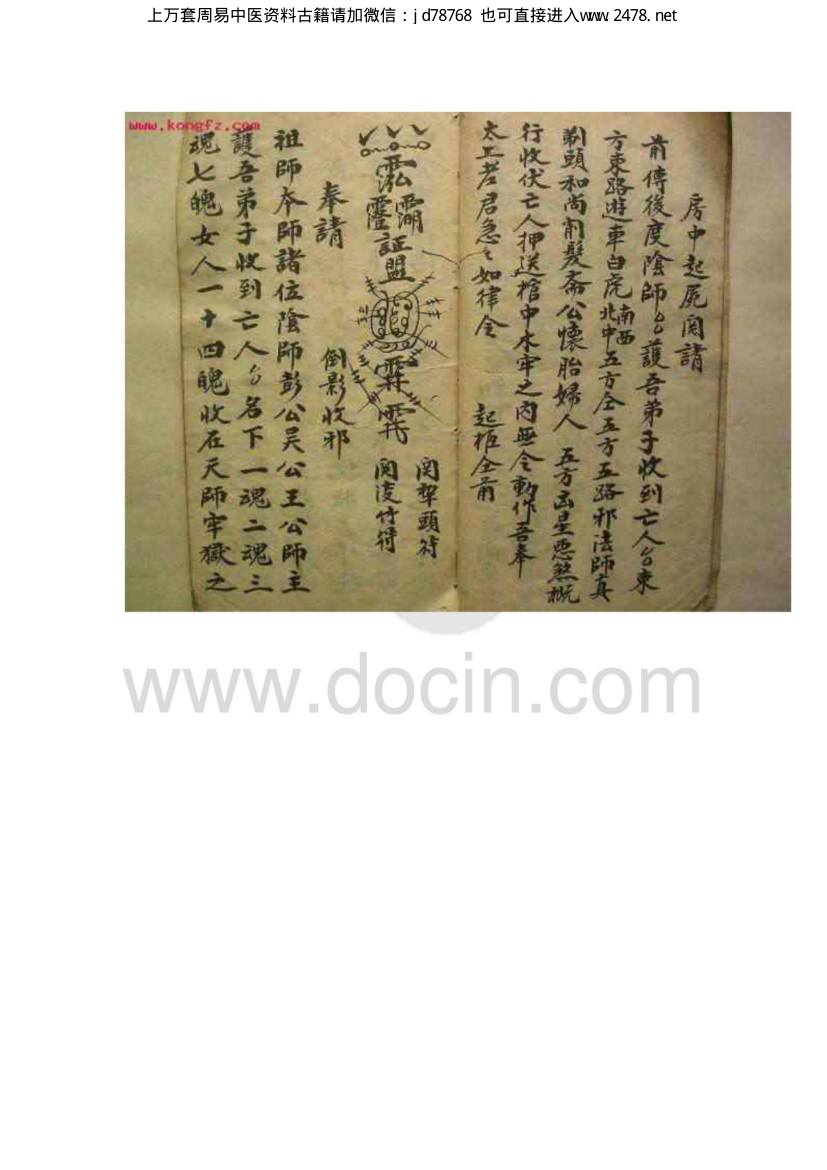 上万套周易中医资料古籍请加微信：jd78768 也可直接进入www.2478.net
www.kongfz.com
房中起屍関請
前傳後度陰師㕥護吾弟子收到亡人㕥東
方東路遊車白虎南西北中五方仝五方五路邪法師真
剃頭和尚削髮斋公懷胎婦人 五方凶星惡煞概
行收伏亡人押送棺中木牢之内無令動作吾奉
太上老君急々如律令 起柩仝前
関犂頭符
関淩竹符
証盟
奉請 倒影收邪
祖師本師諸位陰師彭公吴公王公師主
護吾弟子收到亡人㕥名下一魂二魂三
魂七魄女人一十四魄收在天師牢獄之
www.docin.com